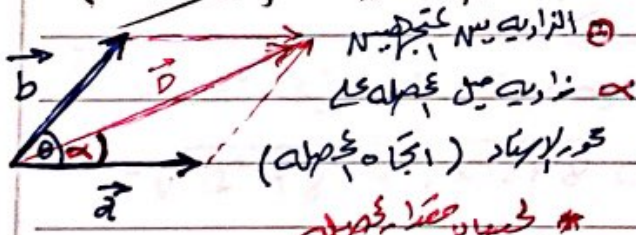 θ الزاوية بين متجهين
α زاوية ميل المحصلة على
محور الإسناد (اتجاه المحصلة)
b
D
θ α
a
* لحساب مقدار المحصلة